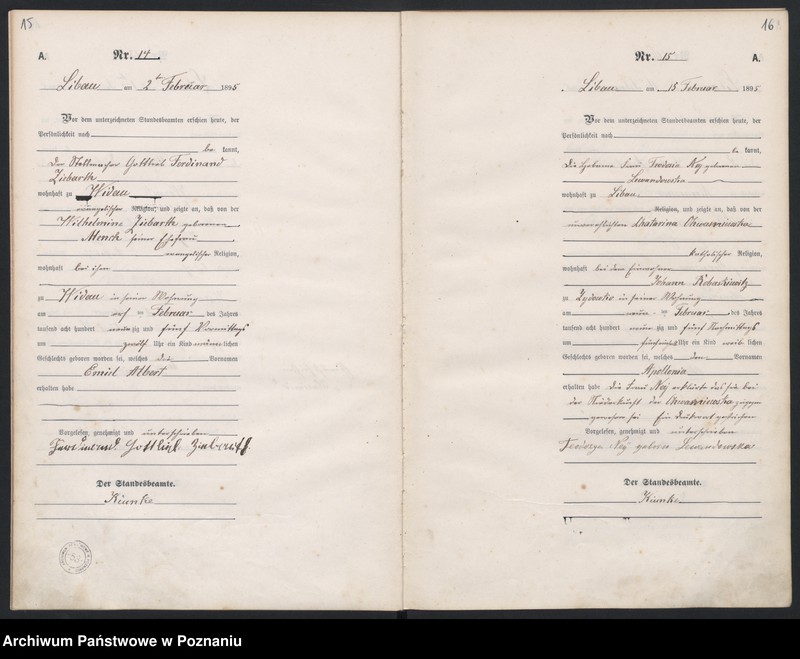 15
Nr. 14.
A.
Libau am 2t Februar 1895
Vor dem unterzeichneten Standesbeamten erschien heute, der
Persönlichkeit nach
be kannt,
der Stellmacher Gottlieb Ferdinand
Ziebarth
wohnhaft zu Widau
evangelischer Religion, und zeigte an, daß von der
Wilhelmine Ziebarth geborenen
Menck seiner Ehefrau
evangelischer Religion,
wohnhaft bei ihm
zu Widau in seiner Wohnung
am Februar des Jahres
tausend acht hundert neunzig und fünf Vormittags
um zwölf Uhr ein Kind männlichen
Geschlechts geboren worden sei, welches die Vornamen
Emil Albert
erhalten habe
Vorgelesen, genehmigt und unterschrieben
Ferdinand Gottlieb Ziebarth
Der Standesbeamte.
Kiunke
16
Nr. 15
A.
Libau am 15 Februar 1895.
Vor dem unterzeichneten Standesbeamten erschien heute, der
Persönlichkeit nach
be kannt,
die Hebamme Frau Noj geborene
Lewandowska
wohnhaft zu Libau
Religion, und zeigte an, daß von der
unverehelichten Chwarniewska
katholischer Religion,
wohnhaft bei dem Einwohner
Johann
zu in seiner Wohnung
am neun Februar des Jahres
tausend acht hundert neunzig und fünf Nachmittags
um Uhr ein Kind weiblichen
Geschlechts geboren worden sei, welches den Vornamen
Apollonia
erhalten habe die Frau Noj erklärte daß sie bei
der Niederkunft der Chwarniewska zugegen
gewesen sei Ein Druckwort gestrichen
Vorgelesen, genehmigt und unterschrieben
Noj geborne Lewandowska
Der Standesbeamte.
Kiunke
Archiwum Państwowe w Poznaniu